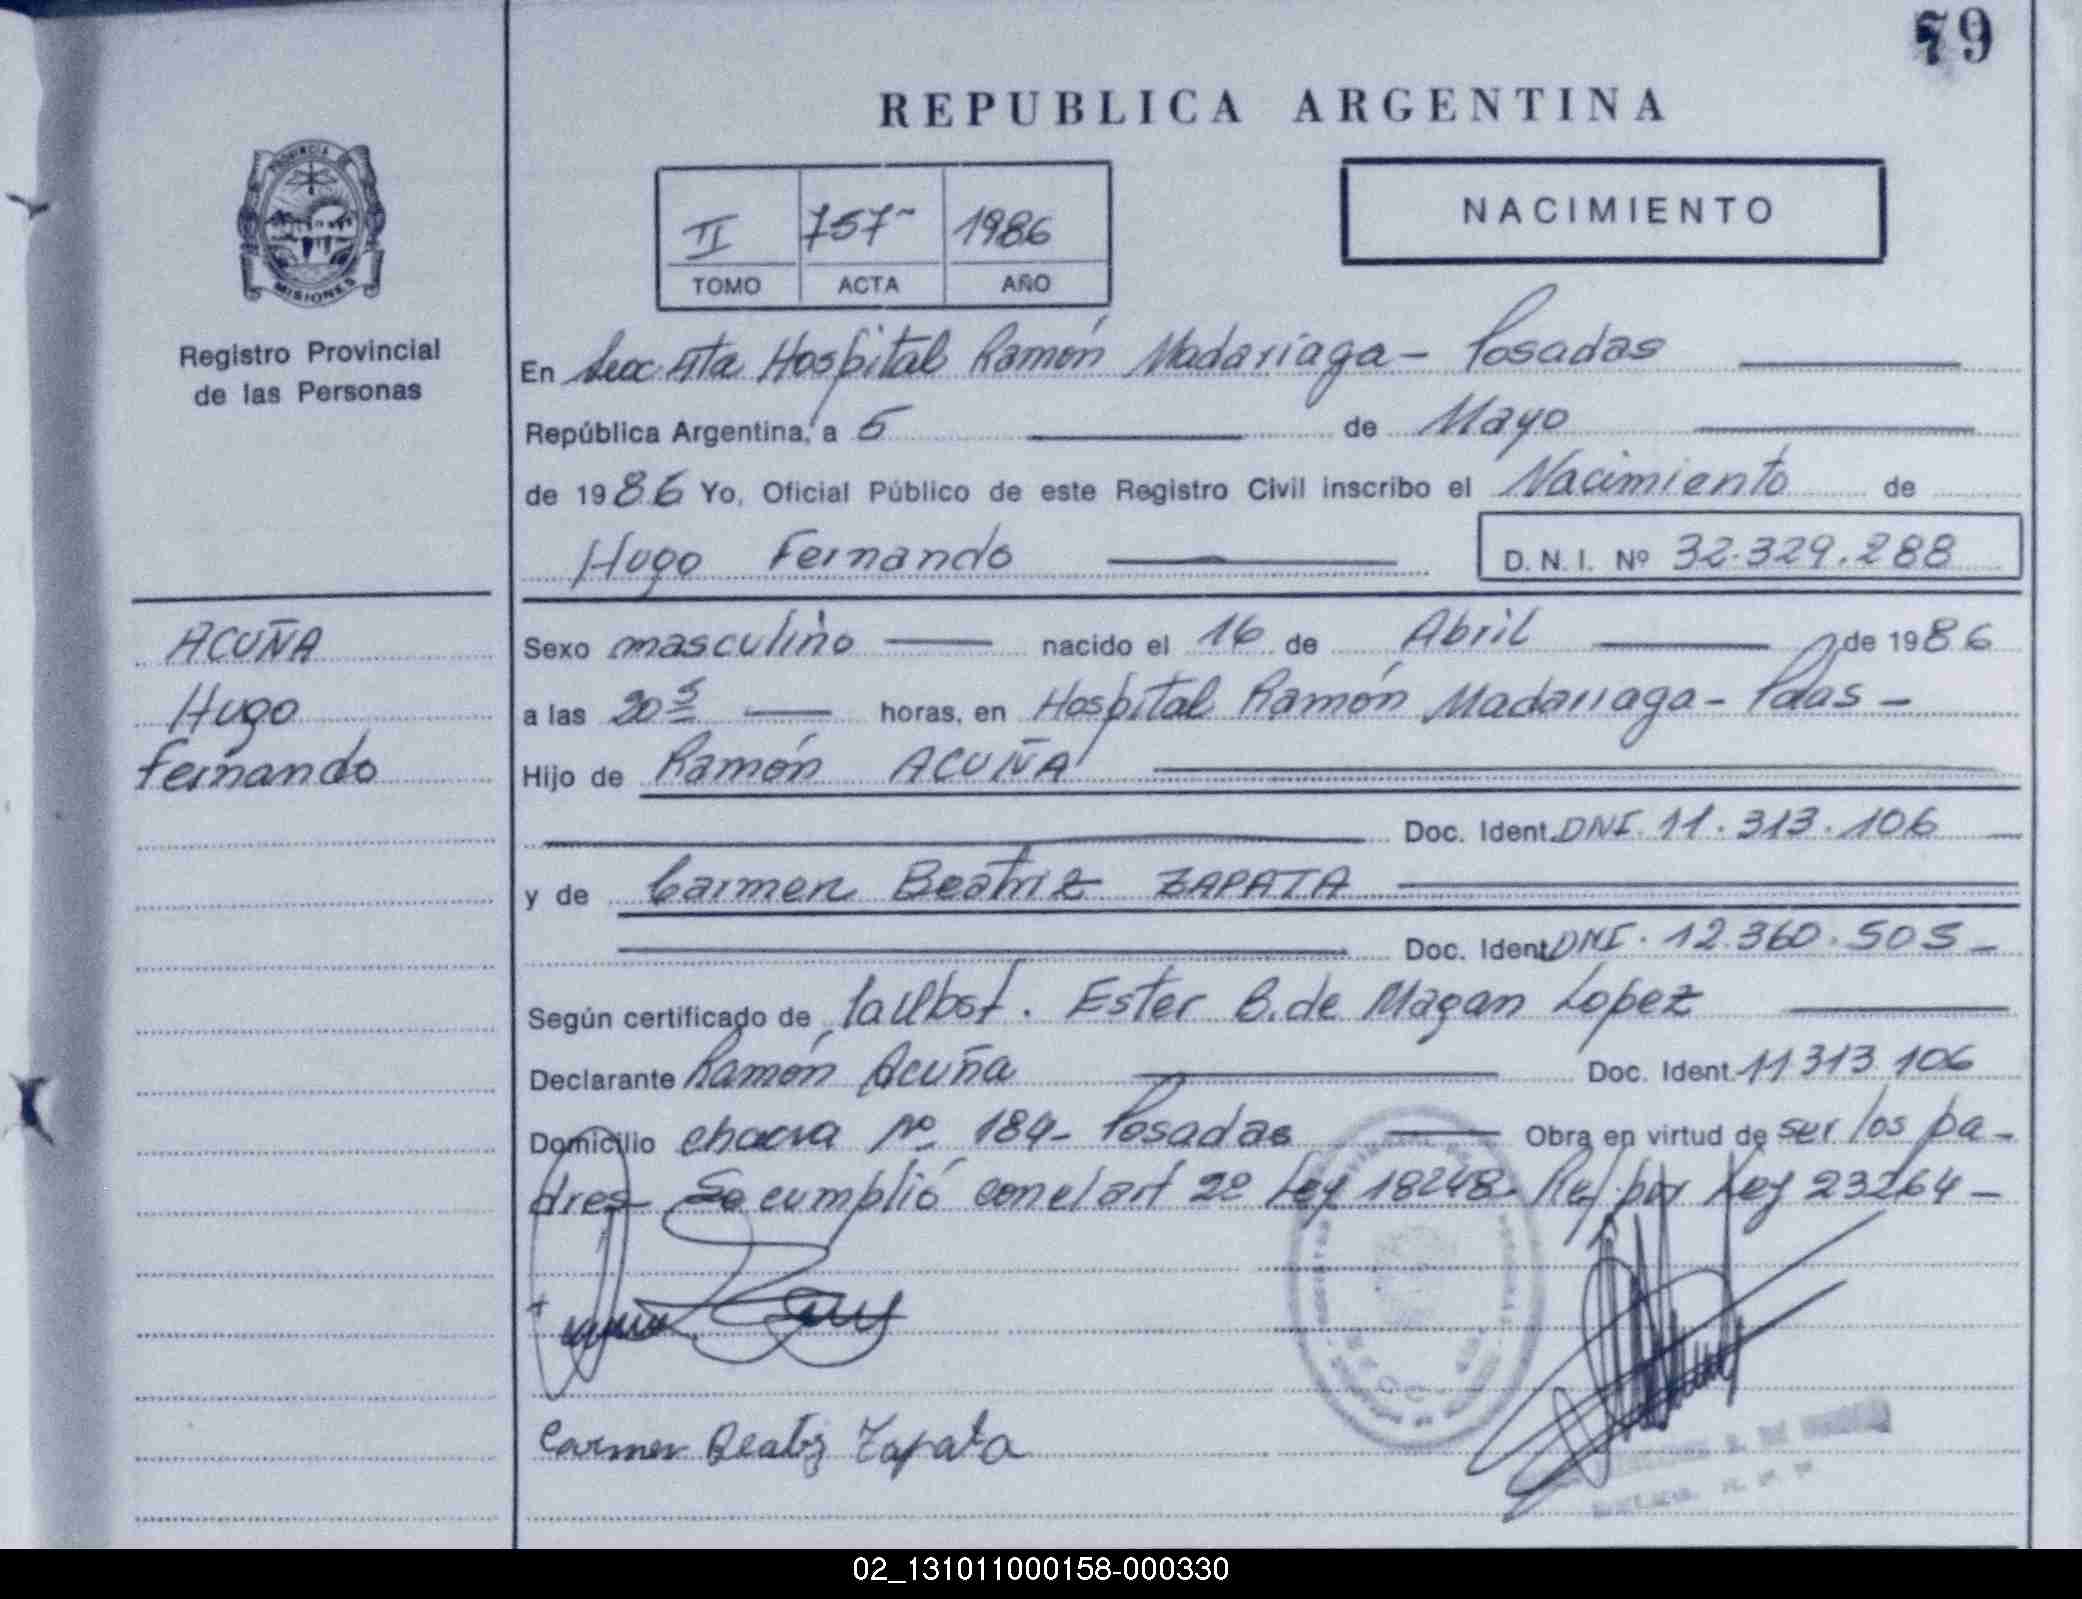 79
REPUBLICA ARGENTINA
PROVINCIA DE
MISIONES
Registro Provincial
de las Personas
II 757 1986
TOMO ACTA AÑO
NACIMIENTO
En Secc 4ta Hospital Ramón Madariaga - Posadas
República Argentina, a 5 de Mayo
de 1986 Yo, Oficial Público de este Registro Civil inscribo el Nacimiento de
Hugo Fernando D. N. I. Nº 32.329.288
ACUÑA
Hugo
Fernando
Sexo masculino nacido el 16 de Abril de 1986
a las 20 5 horas, en Hospital Ramón Madariaga - Pdas -
Hijo de Ramón ACUÑA
Doc. Ident. DNI. 11.313.106
y de Carmen Beatriz ZAPATA
Doc. Ident. DNI. 12.360.505 -
Según certificado de Ester B. de Magan Lopez
Declarante Ramón Acuña Doc. Ident. 11 313 106
Domicilio chacra Nº 189 - Posadas Obra en virtud de ser los pa-
dres - Se cumplió con el art 2º Ley 18248 - Ref. por Ley 23264 -
Carmen Beatriz Zapata
02_131011000158-000330